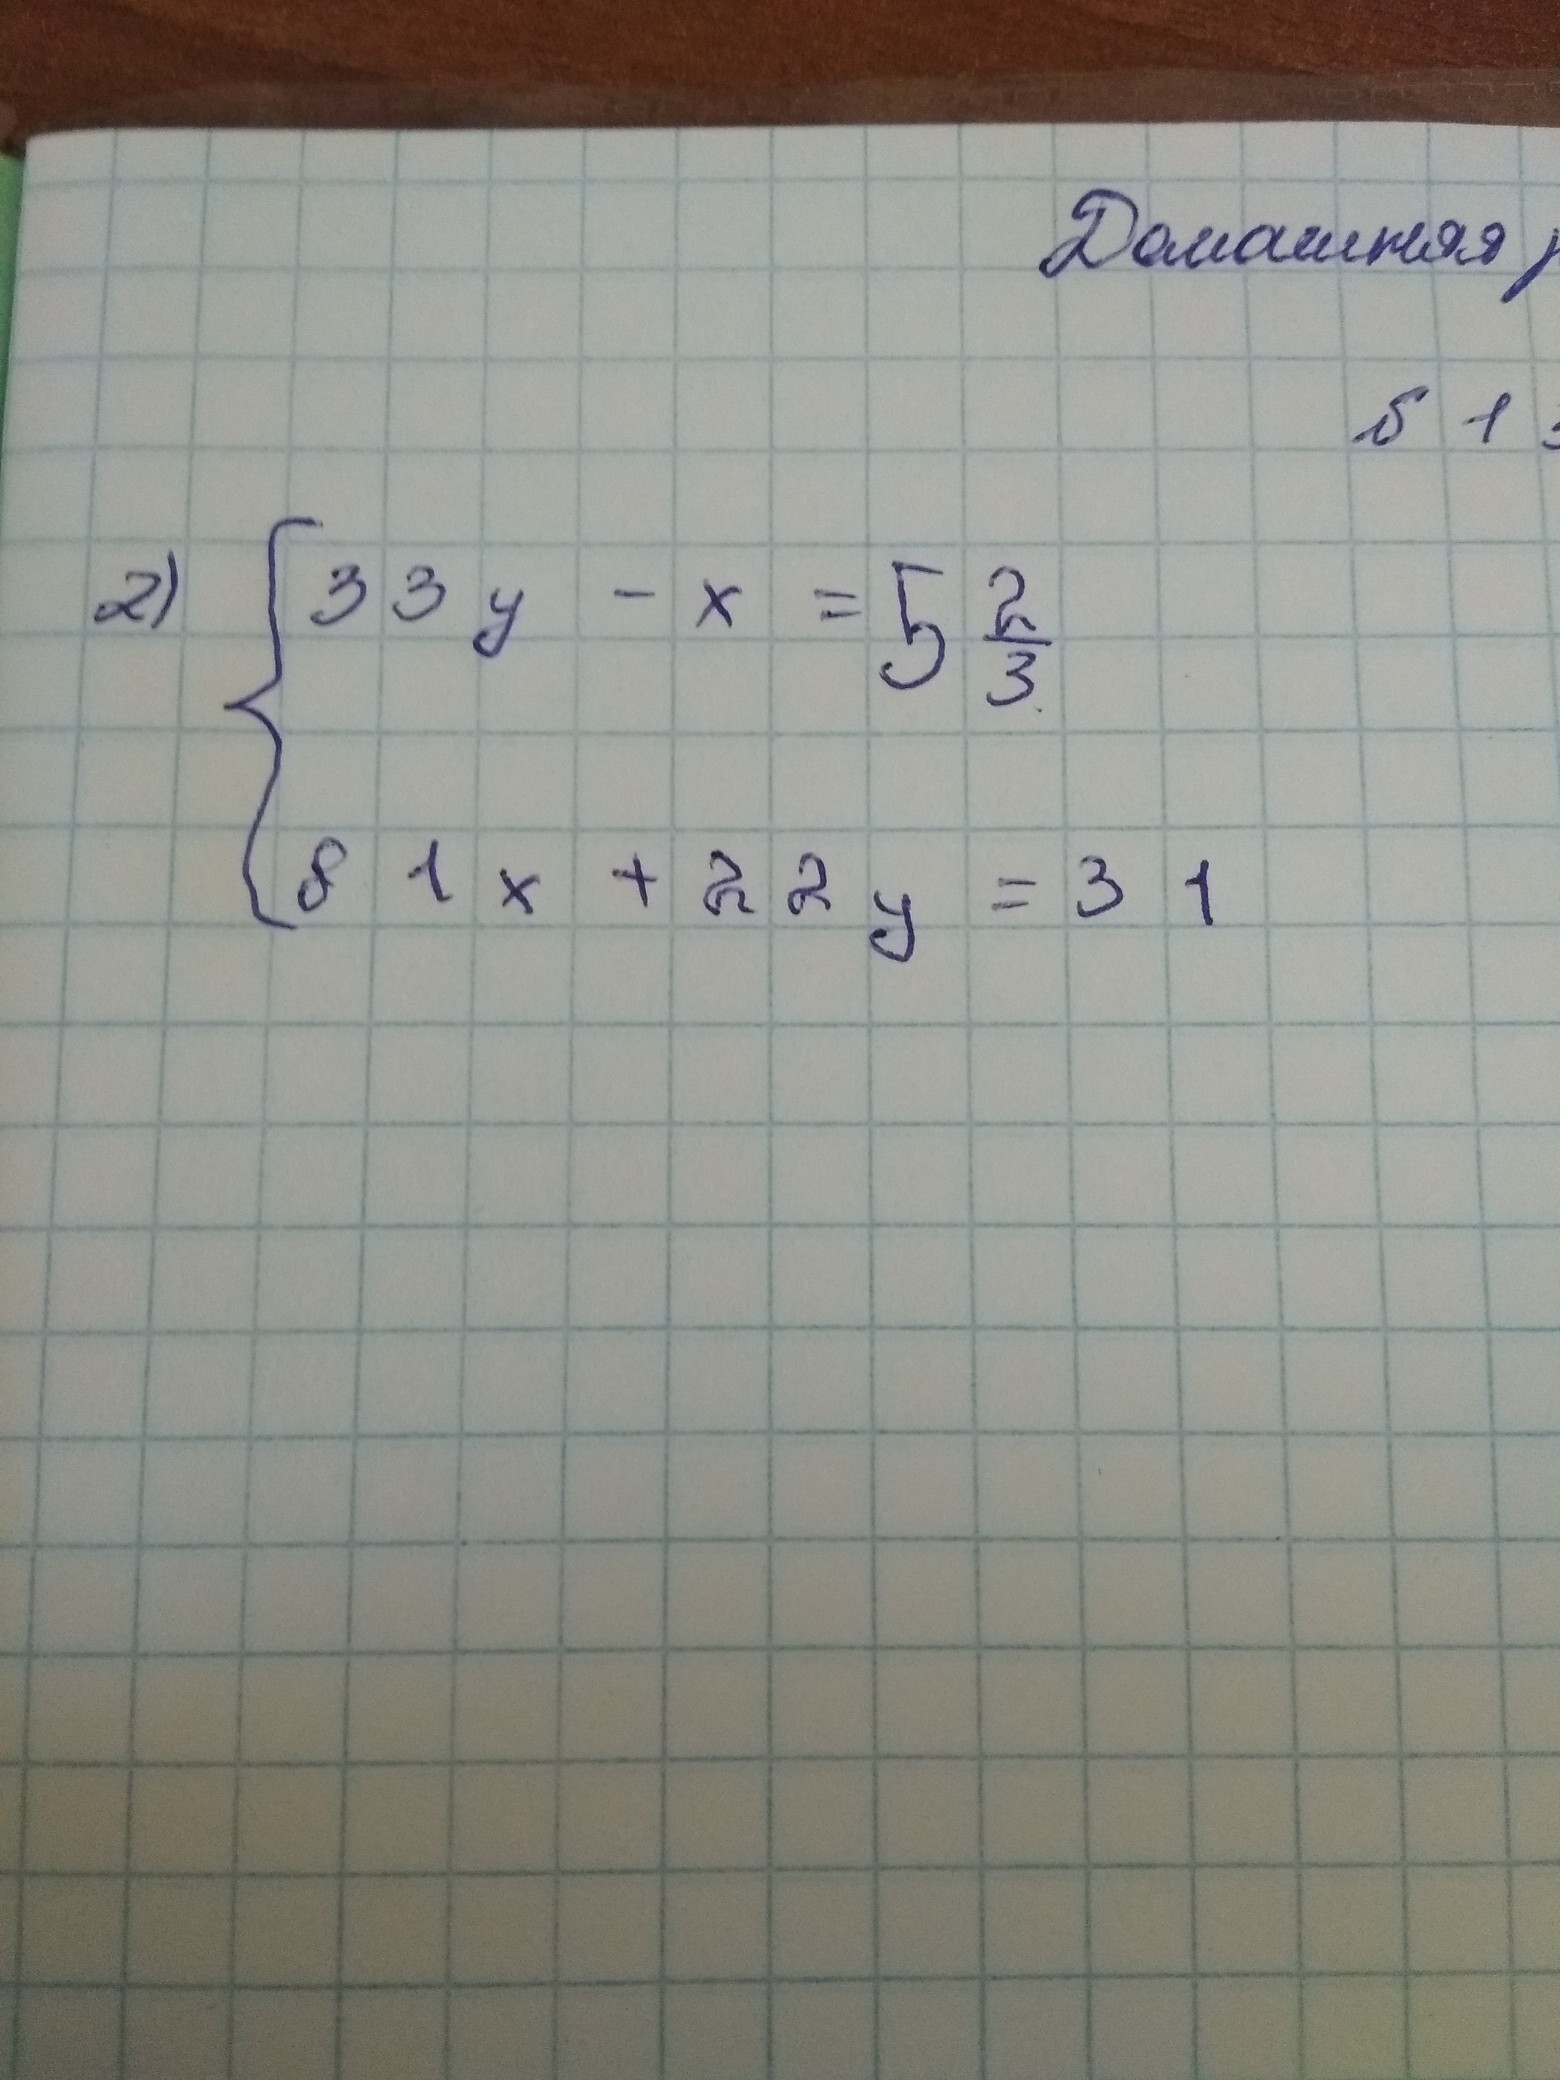 Домашняя
51
2) { 33y - x = 5 2/3
81x + 22y = 31